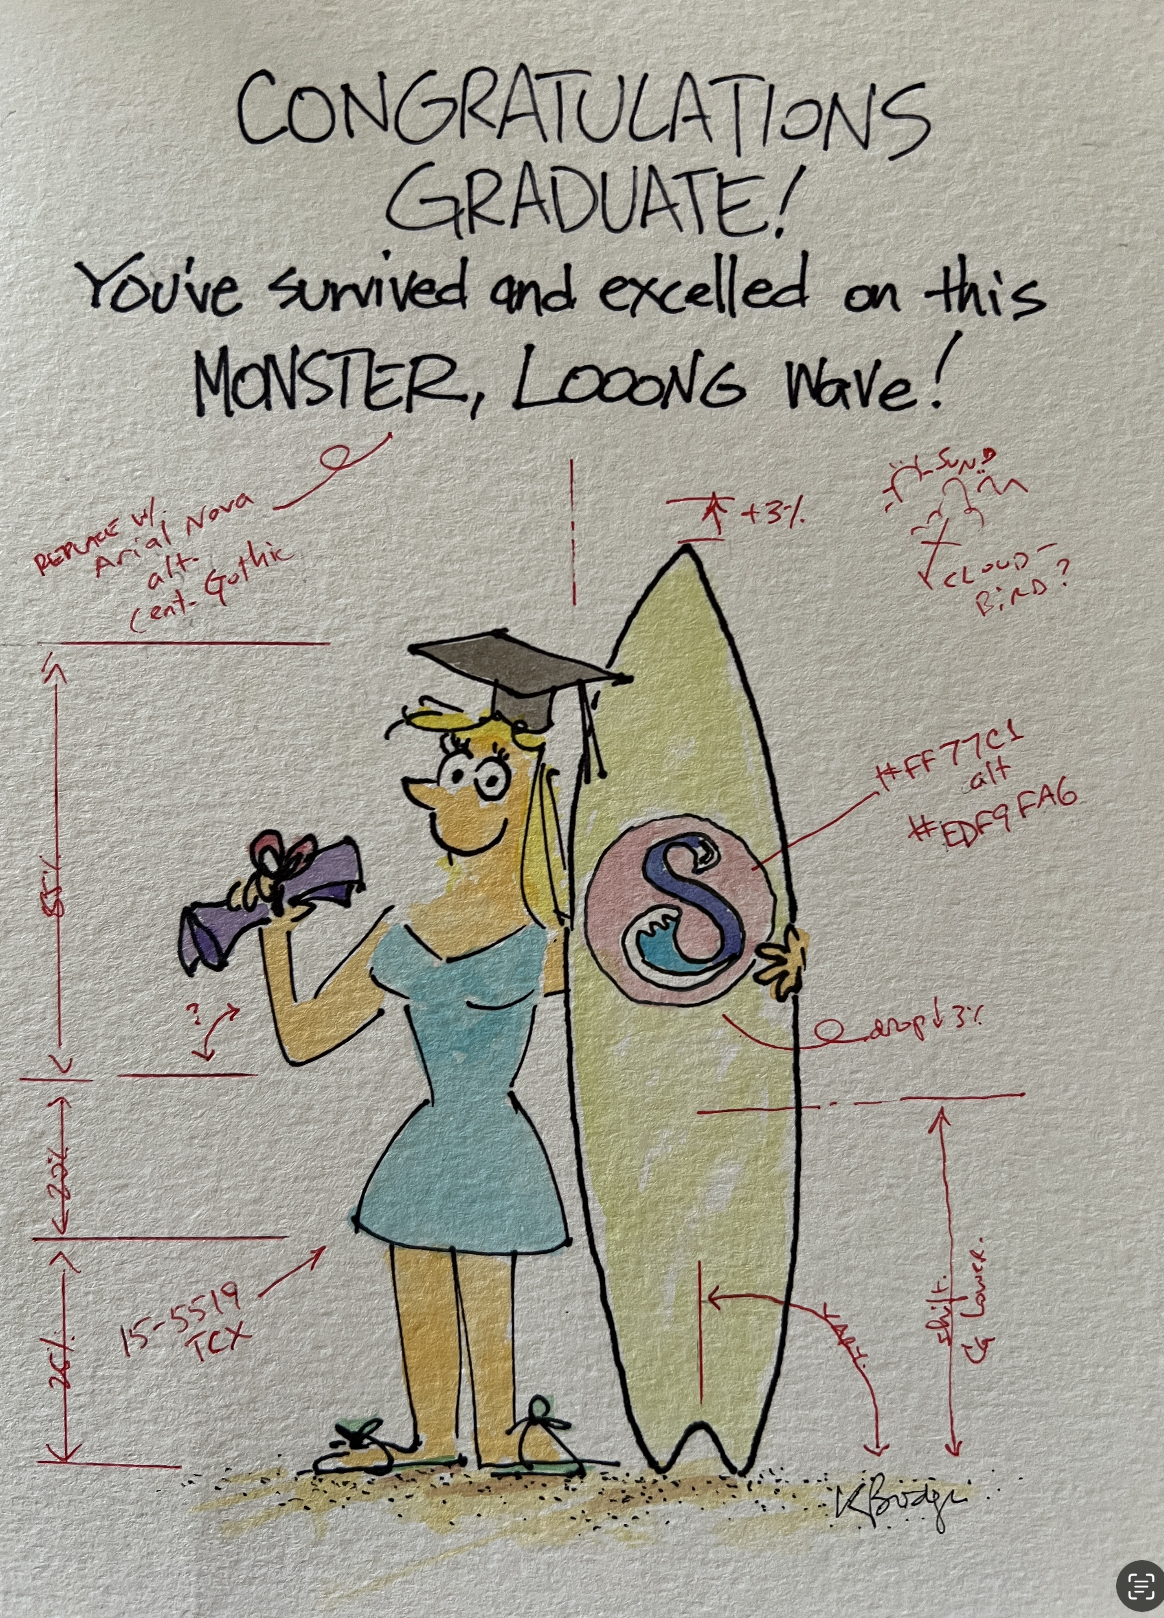 CONGRATULATIONS
GRADUATE!
You've survived and excelled on this
MONSTER, LOOONG Wave!
REPLACE W/.
Arial Nova
alt.
Cent. Gothic
+3%
SUN?
CLOUD-
BIRD?
#FF77C1
alt
#EDF9FA6
55%
S
?
drop↓3%
20%
15-5519
TCX
26%
shift.
CG Lower.
K Bridge